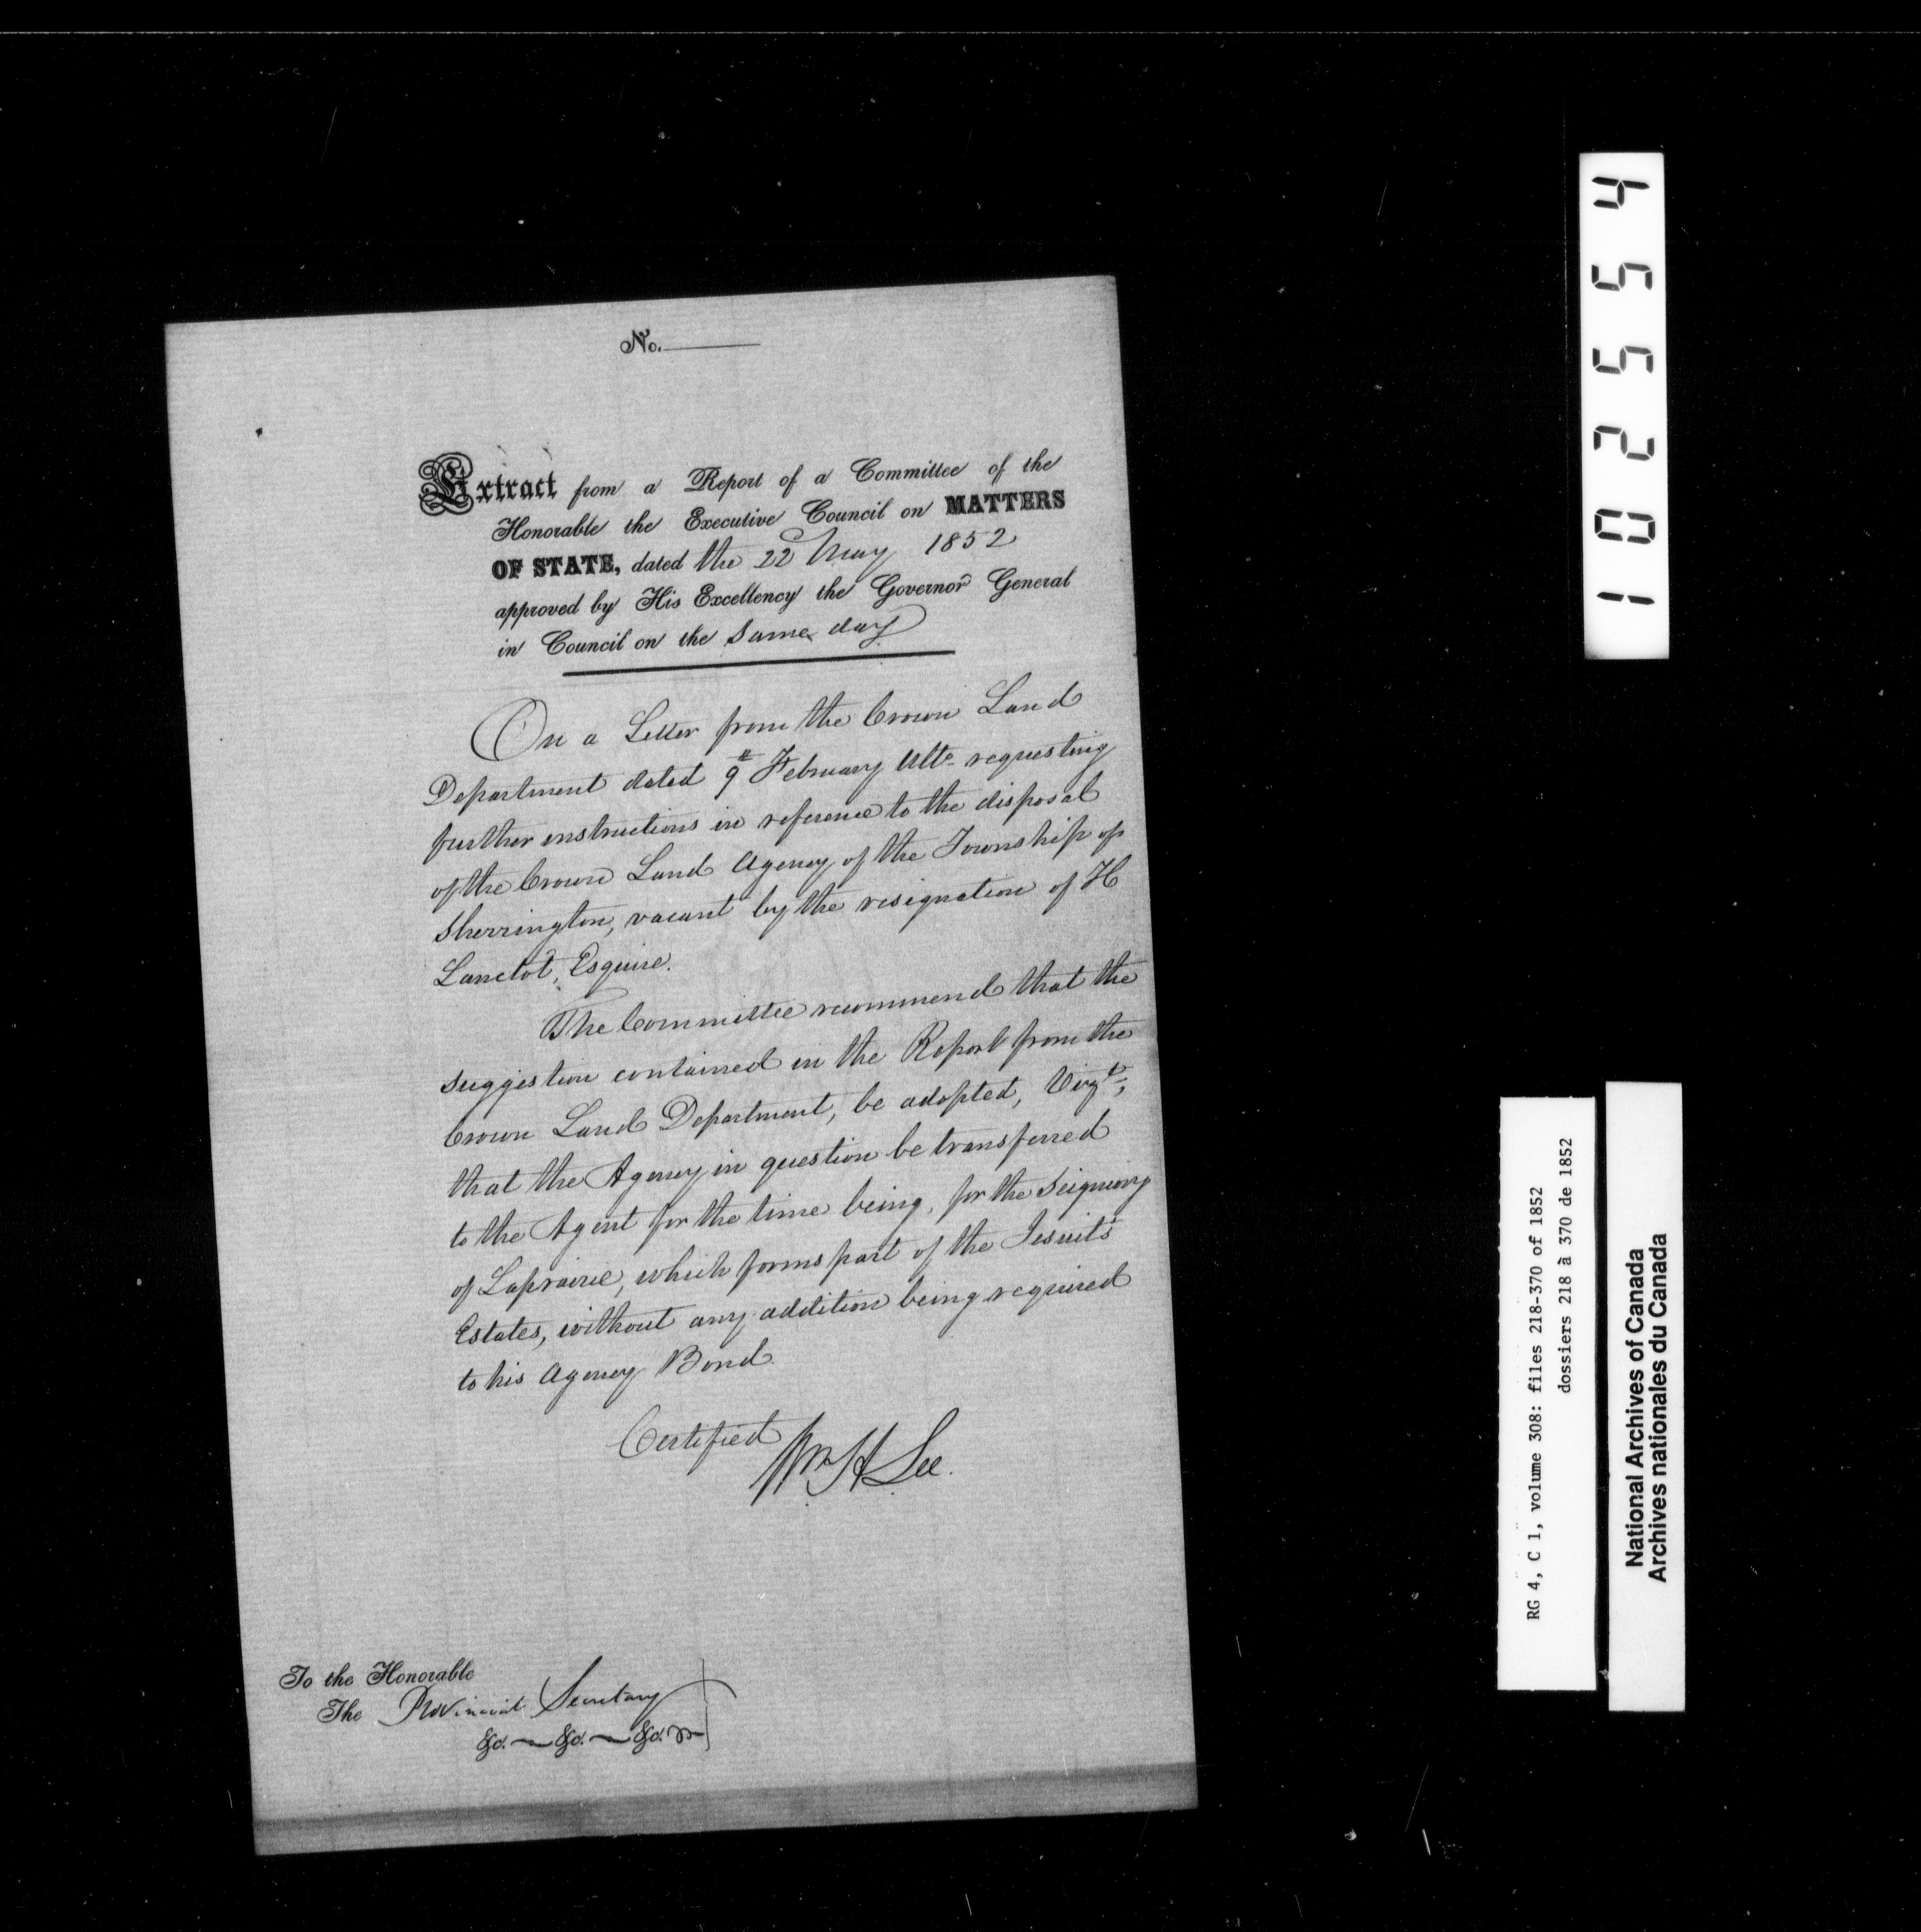 No.
Extract from a Report of a Committee of the
Honorable the Executive Council on MATTERS
OF STATE, dated the 22 May 1852
approved by His Excellency the Governor General
in Council on the same day
On a Letter from the Crown Land
Department dated 9th February Ulto requesting
further instructions in reference to the disposal
of the Crown Land Agency of the Township of
Sherrington, vacant by the resignation of H
Lanctot, Esquire.
The Committee recommend that the
suggestion contained in the Report from the
Crown Land Department, be adopted, Vizt;
that the Agency in question be transferred
to the Agent for the time being, for the Seigniory
of Laprairie, which forms part of the Jesuit's
Estates, without any addition being required
to his Agency Bond.
Certified
Wm H Lee.
To the Honorable
The Provincial Secretary
&c. &c. &c.
102554
RG 4, C 1, volume 308: files 218-370 of 1852
dossiers 218 à 370 de 1852
National Archives of Canada
Archives nationales du Canada